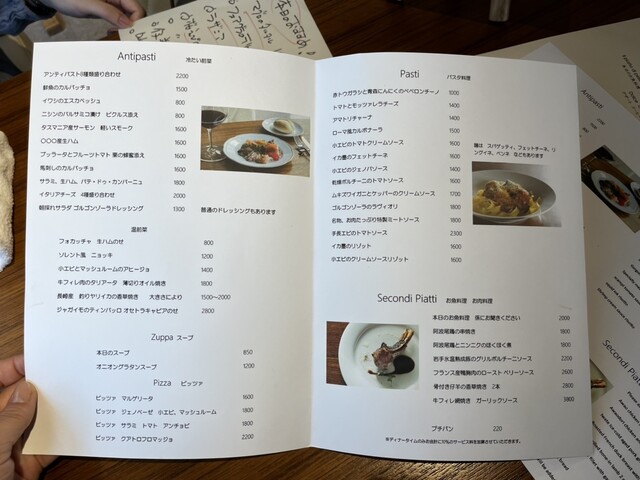 本日のおすすめ
Antipasti 冷たい前菜
アンティパスト11種類盛り合わせ 2200
鮮魚のカルパッチョ 1500
イワシのエスカベッシュ 800
ニシンのバルサミコ漬け ピクルス添え 800
タスマニア産サーモン 軽いスモーク 1600
〇〇〇産生ハム 1600
ブッラータとフルーツトマト 栗の蜂蜜添え 1600
馬刺しのカルパッチョ 1600
サラミ、生ハム、パテ・ドゥ・カンパーニュ 1800
イタリアチーズ 4種盛り合わせ 2000
朝採れサラダ ゴルゴンゾーラドレッシング 1300
普通のドレッシングもあります
温前菜
フォカッチャ 生ハムのせ 800
ソレント風 ニョッキ 1200
小エビとマッシュルームのアヒージョ 1400
牛フィレ肉のタリアータ 薄切りオイル焼き 1800
長崎産 釣りヤリイカの香草焼き 大きさにより 1500～2000
ジャガイモのティンバッロ オセトラキャビアのせ 2800
Zuppa スープ
本日のスープ 850
オニオングラタンスープ 1200
Pizza ピッツァ
ピッツァ マルゲリータ 1600
ピッツァ ジェノベーゼ 小エビ、マッシュルーム 1800
ピッツァ サラミ トマト アンチョビ 1800
ピッツァ クアトロフロマッジョ 2200
Pasti パスタ料理
赤トウガラシと青森にんにくのペペロンチーノ 1000
トマトとモッツァレラチーズ 1400
アマトリチャーナ 1400
ローマ風カルボナーラ 1500
小エビのトマトクリームソース 1600
イカ墨のフェットチーネ 1600
小エビのジェノバソース 1400
乾燥ポルチーニのトマトソース 1600
ムキズワイガニとケッパーのクリームソース 1700
ゴルゴンゾーラのラヴィオリ 1800
名物、お肉たっぷり特製ミートソース 1800
手長エビのトマトソース 2300
イカ墨のリゾット 1600
小エビのクリームソースリゾット 1600
麺は スパゲッティ、フェットチーネ、リングイネ、ペンネ などもあります
Secondi Piatti お魚料理 お肉料理
本日のお魚料理 係にお聞きください 2000
阿波尾鶏の串焼き 1800
阿波尾鶏とニンニクのほくほく煮 1800
岩手氷温熟成豚のグリルポルチーニソース 2200
フランス産鴨胸肉のロースト ベリーソース 2600
骨付き仔羊の香草焼き 2本 2800
牛フィレ網焼き ガーリックソース 3800
プチパン 220
※ディナータイムのみお会計に10%のサービス料を加算させていただきます。
Antipasti
Secondi Piatti